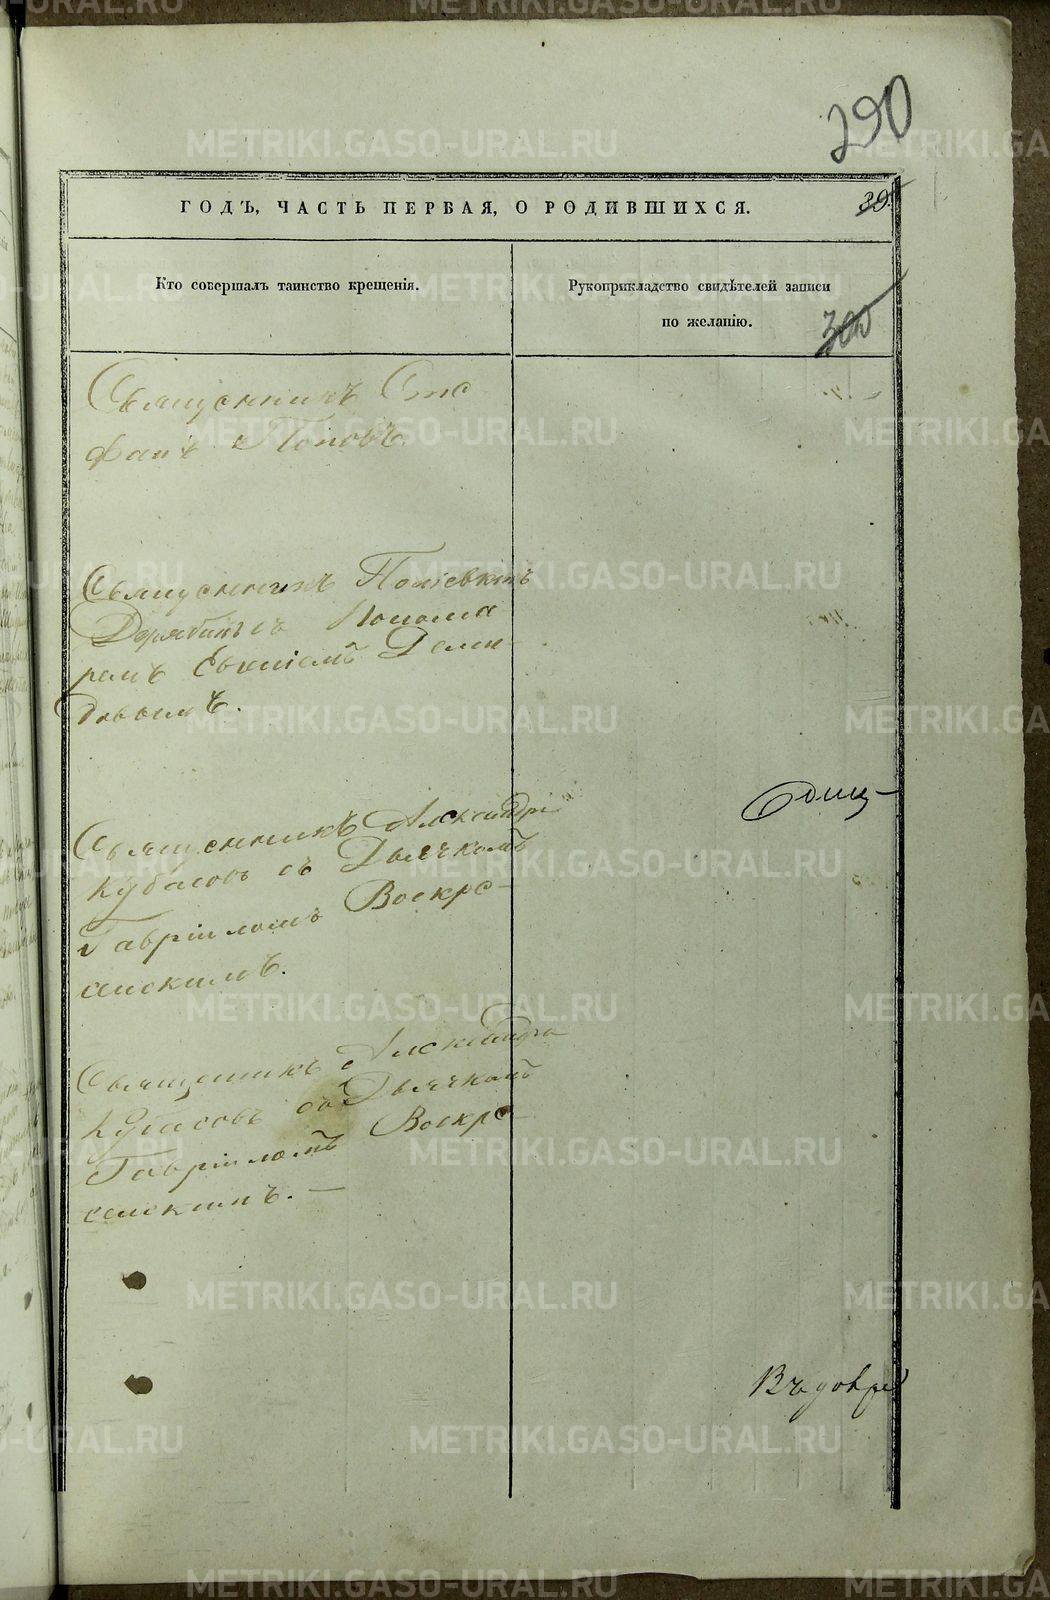 290
ГОДЪ, ЧАСТЬ ПЕРВАЯ, О РОДИВШИХСЯ.
39.
Кто совершалъ таинство крещенія.
Рукоприкладство свидѣтелей записи
по желанію.
300
Священникъ Сте
фанъ Поповъ.
Священникъ Поліевктъ
Дерябинъ съ Понома
ремъ Евгніемъ Деми-
довымъ.
Священникъ Александръ
Кубасовъ съ Дьячкомъ
Гавріиломъ Воскре-
сенскимъ.
Священникъ Александръ
Кубасовъ съ Дьячкомъ
Гавріиломъ Воскре-
сенскимъ. —
METRIKI.GASO-URAL.RU